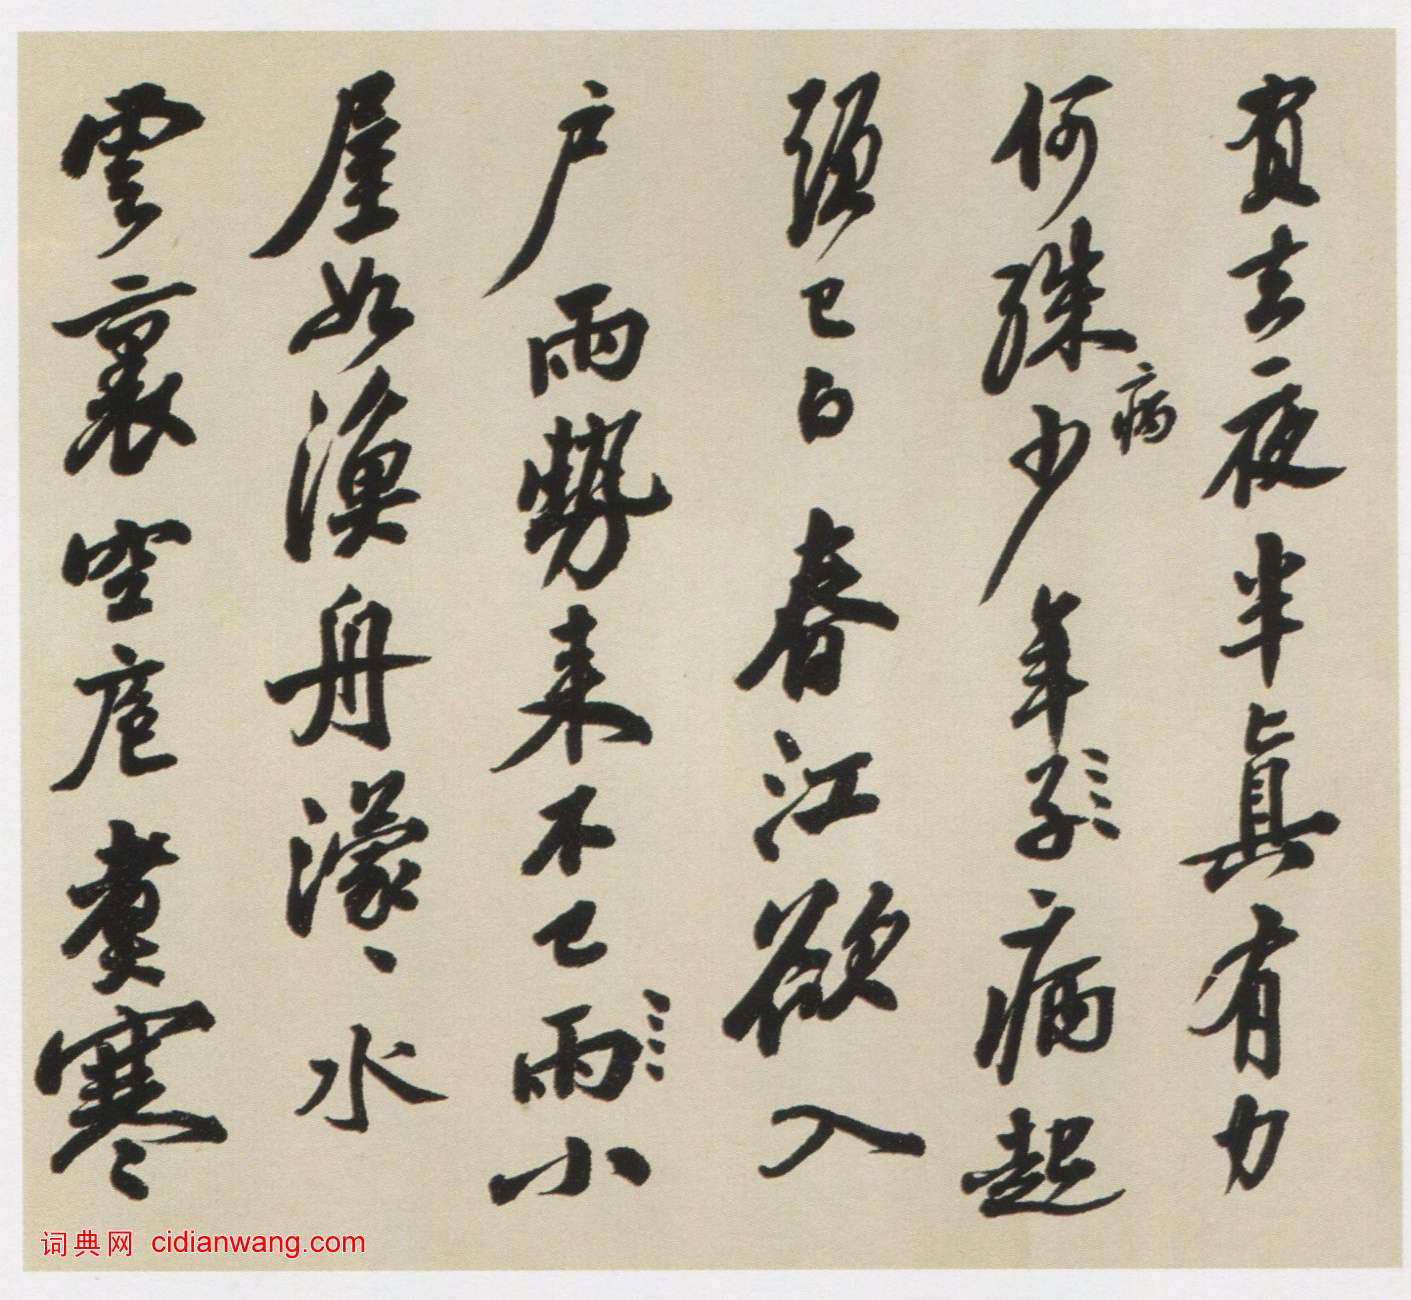 負去夜半真有力
何殊少年子病起
病
頭已白春江欲入
戶雨勢來不已雨小
屋如漁舟濛々水
雲裏空庖煮寒
词典网 cidianwang.com